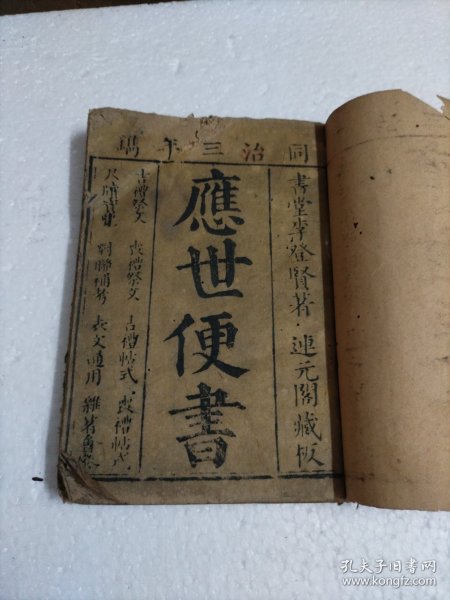 同治三年鐫
書堂李登賢著 連元閣藏板
應世便書
吉禮祭文 喪禮祭文 吉禮帖式 喪禮帖式
尺牘 對聯補考 表文通用 雜著
孔夫子旧书网
www.kongfz.com